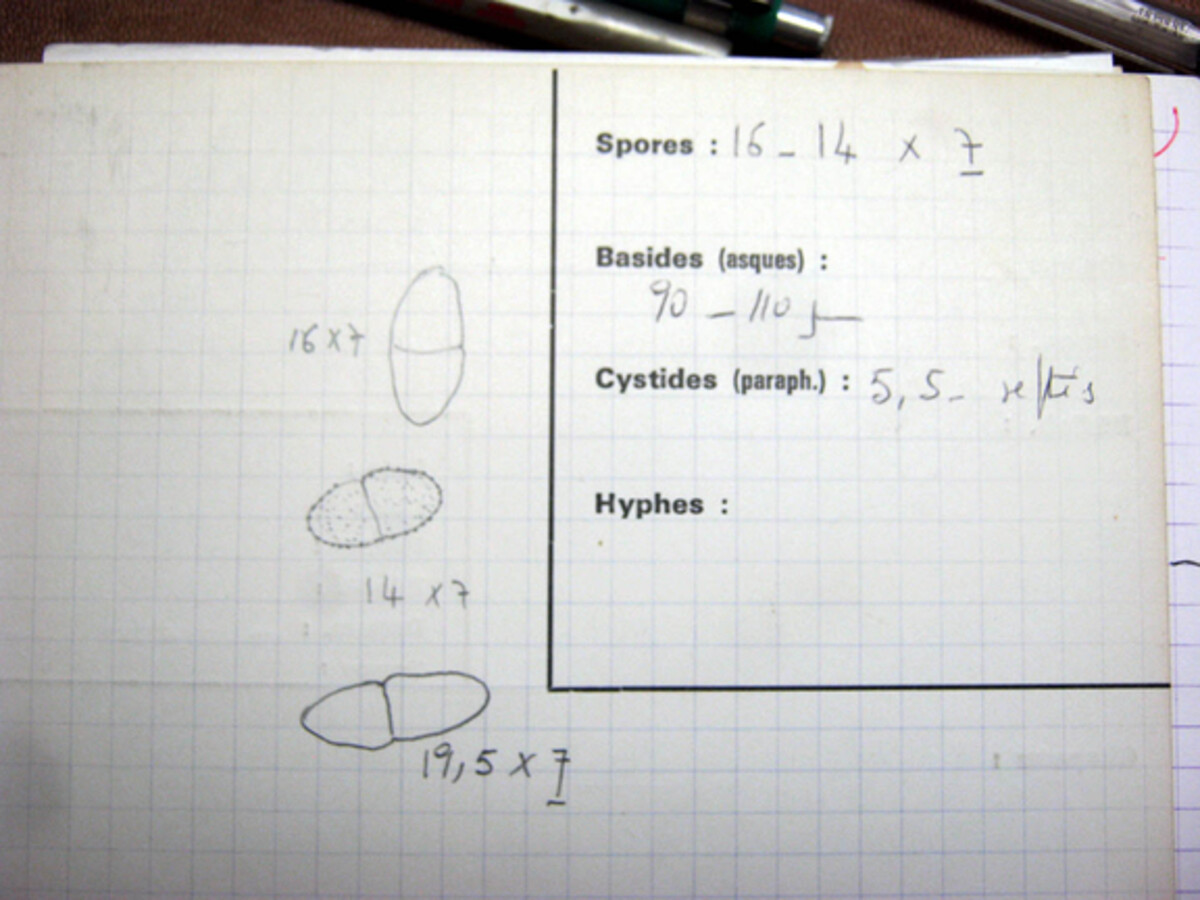 Spores : 16 - 14 x 7
Basides (asques) :
90 - 110 µ
Cystides (paraph.) : 5,5 -
Hyphes :
16 x 7
14 x 7
19,5 x 7